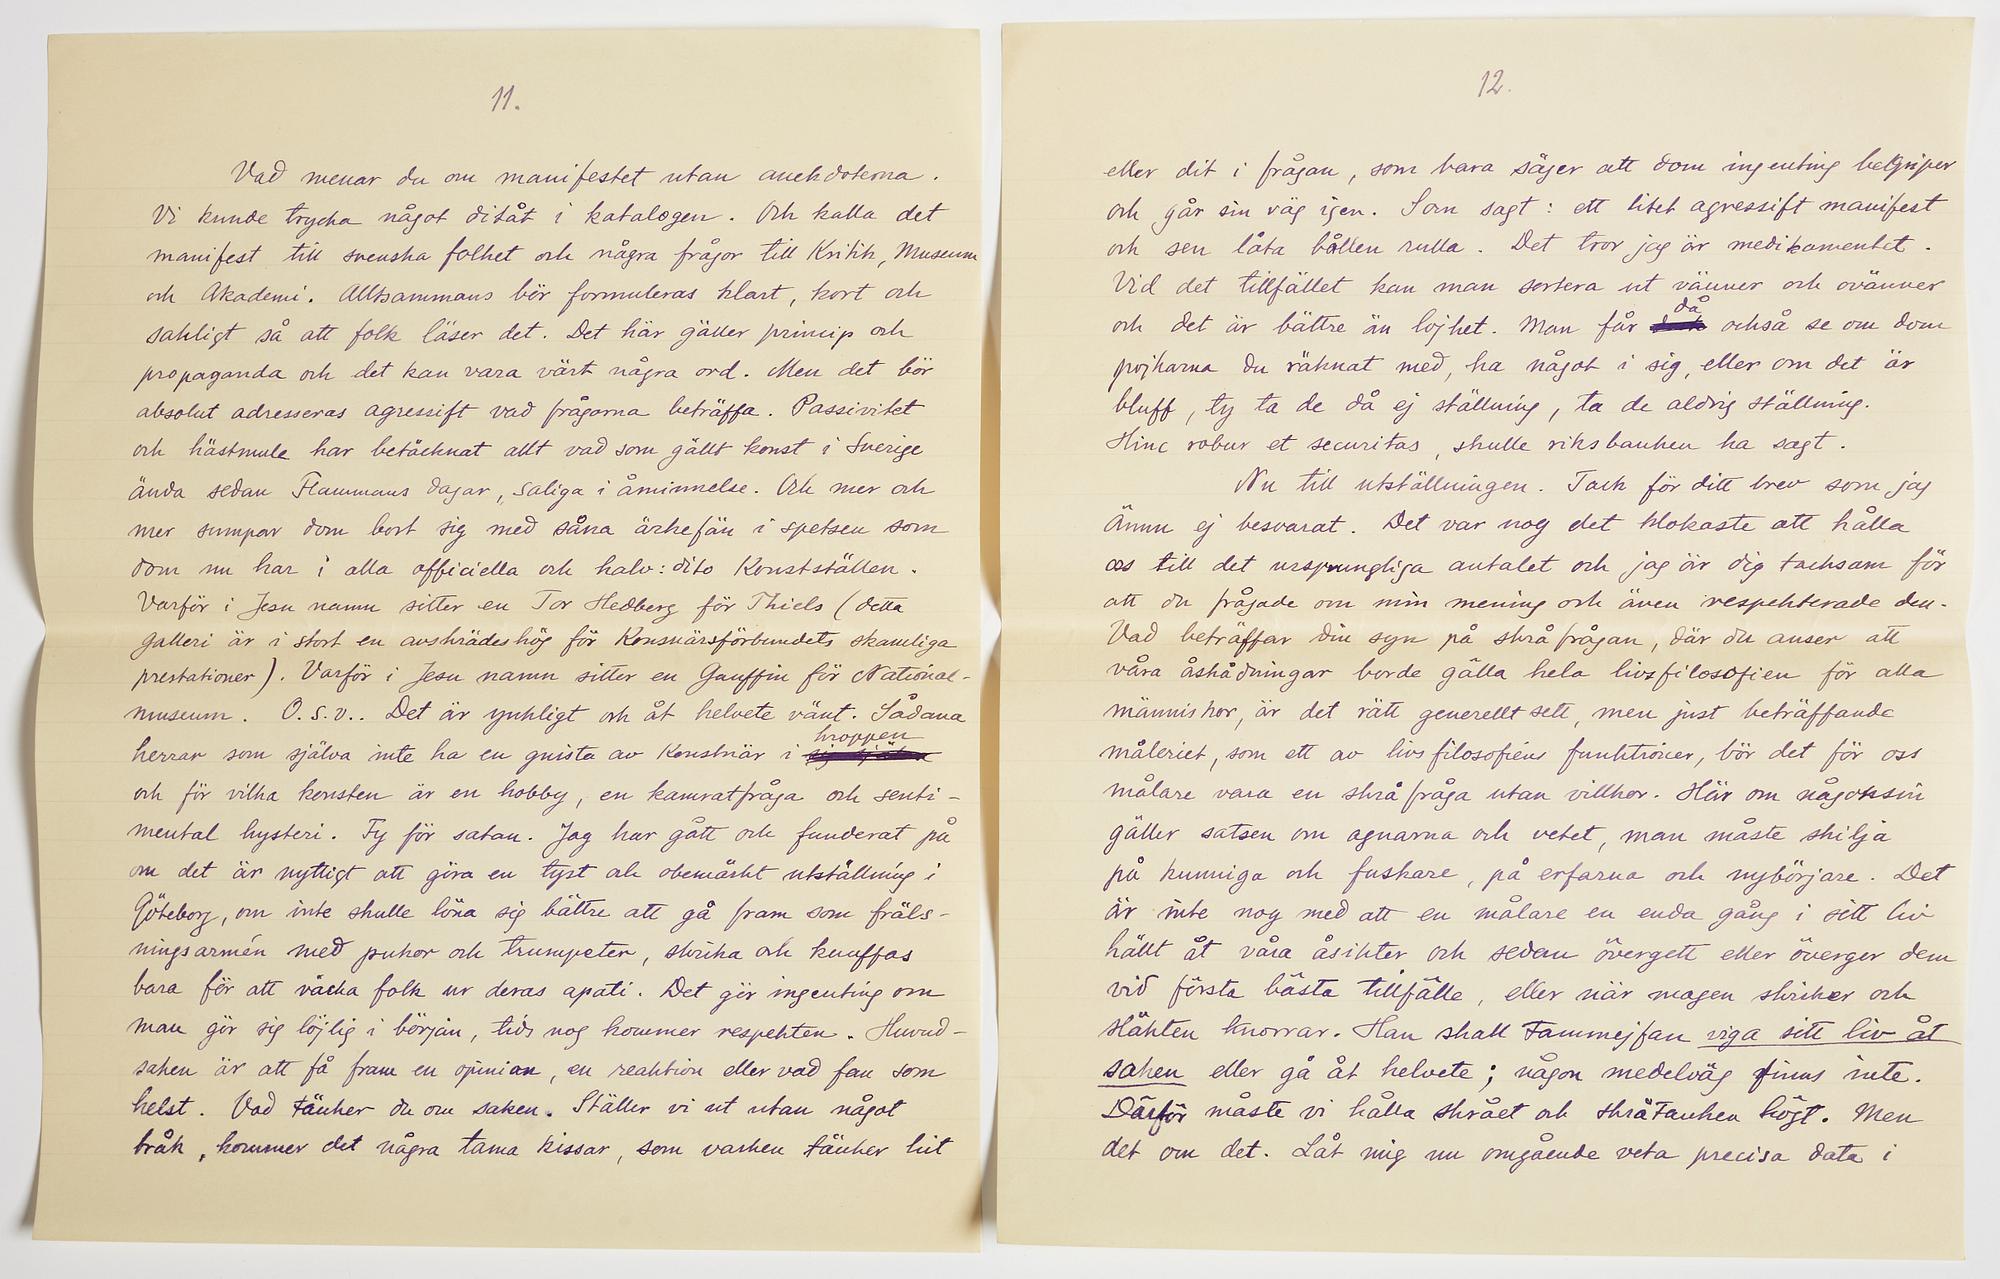 11.
Vad menar du om manifestet utan anekdoterna.
Vi kunde trycka något ditåt i katalogen. Och kalla det
manifest till svenska folket och några frågor till Kritik, Museum
och Akademi. Alltsammans bör formuleras klart, kort och
sakligt så att folk läser det. Det här gäller princip och
propaganda och det kan vara värt några ord. Men det bör
absolut adresseras agressift vad frågorna beträffa. Passivitet
och hästmule har betäcknat allt vad som gällt konst i Sverige
ända sedan Flammans dagar, saliga i åminnelse. Och mer och
mer sumpar dom bort sig med såna ärkefän i spetsen som
dom nu har i alla officiella och halv:dito Konstställen.
Varför i Jesu namn sitter en Tor Hedberg för Thiels (detta
galleri är i stort en avskrädeshög för Konsnärsförbundets skamliga
prestationer). Varför i Jesu namn sitter en Gauffin för National-
museum. O.s.v.. Det är ynkligt och åt helvete vänt. Sådana
kroppen
herrar som själva inte ha en gnista av Konstnär i
och för vilka konsten är en hobby, en kamratfråga och senti-
mental hysteri. Ty för satan. Jag har gått och funderat på
om det är nyttigt att göra en tyst och obemärkt utställning i
Göteborg, om inte skulle löna sig bättre att gå fram som fräls-
ningsarmén med pukor och trumpeter, skrika och knuffas
bara för att väcka folk ur deras apati. Det gör ingenting om
man gör sig löjlig i början, tids nog kommer respekten. Huvud-
saken är att få fram en opinion, en reaktion eller vad fan som
helst. Vad tänker du om saken. Ställer vi ut utan något
bråk, kommer det några tama kissar, som varken tänker hit
12.
eller dit i frågan, som bara säger att dom ingenting begriper
och går sin väg igen. Som sagt: ett litet agressift manifest
och sen låta bållen rulla. Det tror jag är medikamentet.
Vid det tillfället kan man sortera ut vänner och ovänner
då
och det är bättre än lojhet. Man får också se om dom
pojkarna du räknat med, ha något i sig, eller om det är
bluff, ty ta de då ej ställning, ta de aldrig ställning.
Hinc robur et securitas, skulle riksbanken ha sagt.
Nu till utställningen. Tack för ditt brev som jag
ännu ej besvarat. Det var nog det klokaste att hålla
oss till det ursprungliga antalet och jag är dig tacksam för
att du frågade om min mening och även respekterade den.
Vad beträffar din syn på skråfrågan, där du anser att
våra åskådningar borde gälla hela livsfilosofien för alla
människor, är det rätt generellt sett, men just beträffande
måleriet, som ett av livsfilosofiens funktioner, bör det för oss
målare vara en skråfråga utan villkor. Här om någonsin
gäller satsen om agnarna och vetet, man måste skilja
på kunniga och fuskare, på erfarna och nybörjare. Det
är inte nog med att en målare en enda gång i sitt liv
hållt åt våra åsikter och sedan övergett eller överger dem
vid första bästa tillfälle, eller när magen skriker och
släkten knorrar. Han skall Tammejfan viga sitt liv åt
saken eller gå åt helvete; någon medelväg finns inte.
Därför måste vi hålla skrået och skråtanken högt. Men
det om det. Låt mig nu omgående veta precisa data i